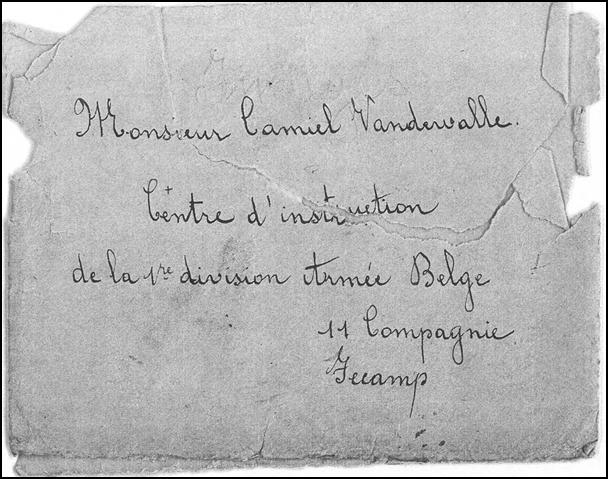 Monsieur Camiel Vanderwalle.
Centre d'instruction
de la 1re division Armée Belge
11 Compagnie
Fecamp